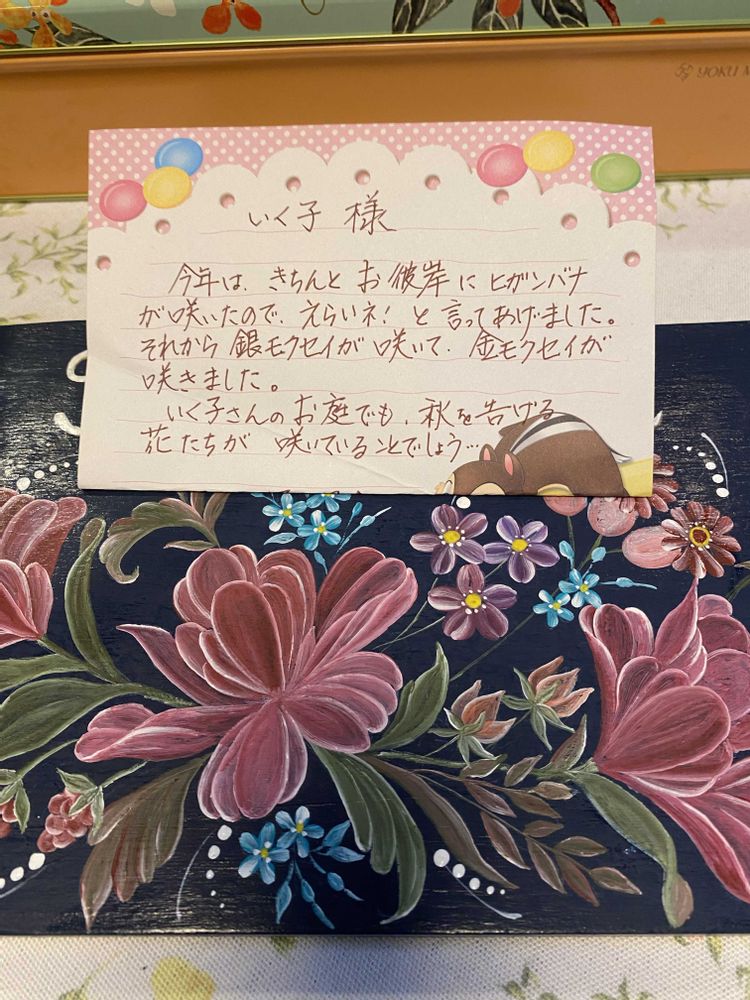 YOKU M
いく子 様
今年は、きちんと お彼岸に ヒガンバナ
が咲いたので、えらいネ! と 言ってあげました。
それから 銀モクセイが 咲いて、金モクセイが
咲きました。
いく子さんの お庭でも、秋を告げる
花たちが 咲いていることでしょう…